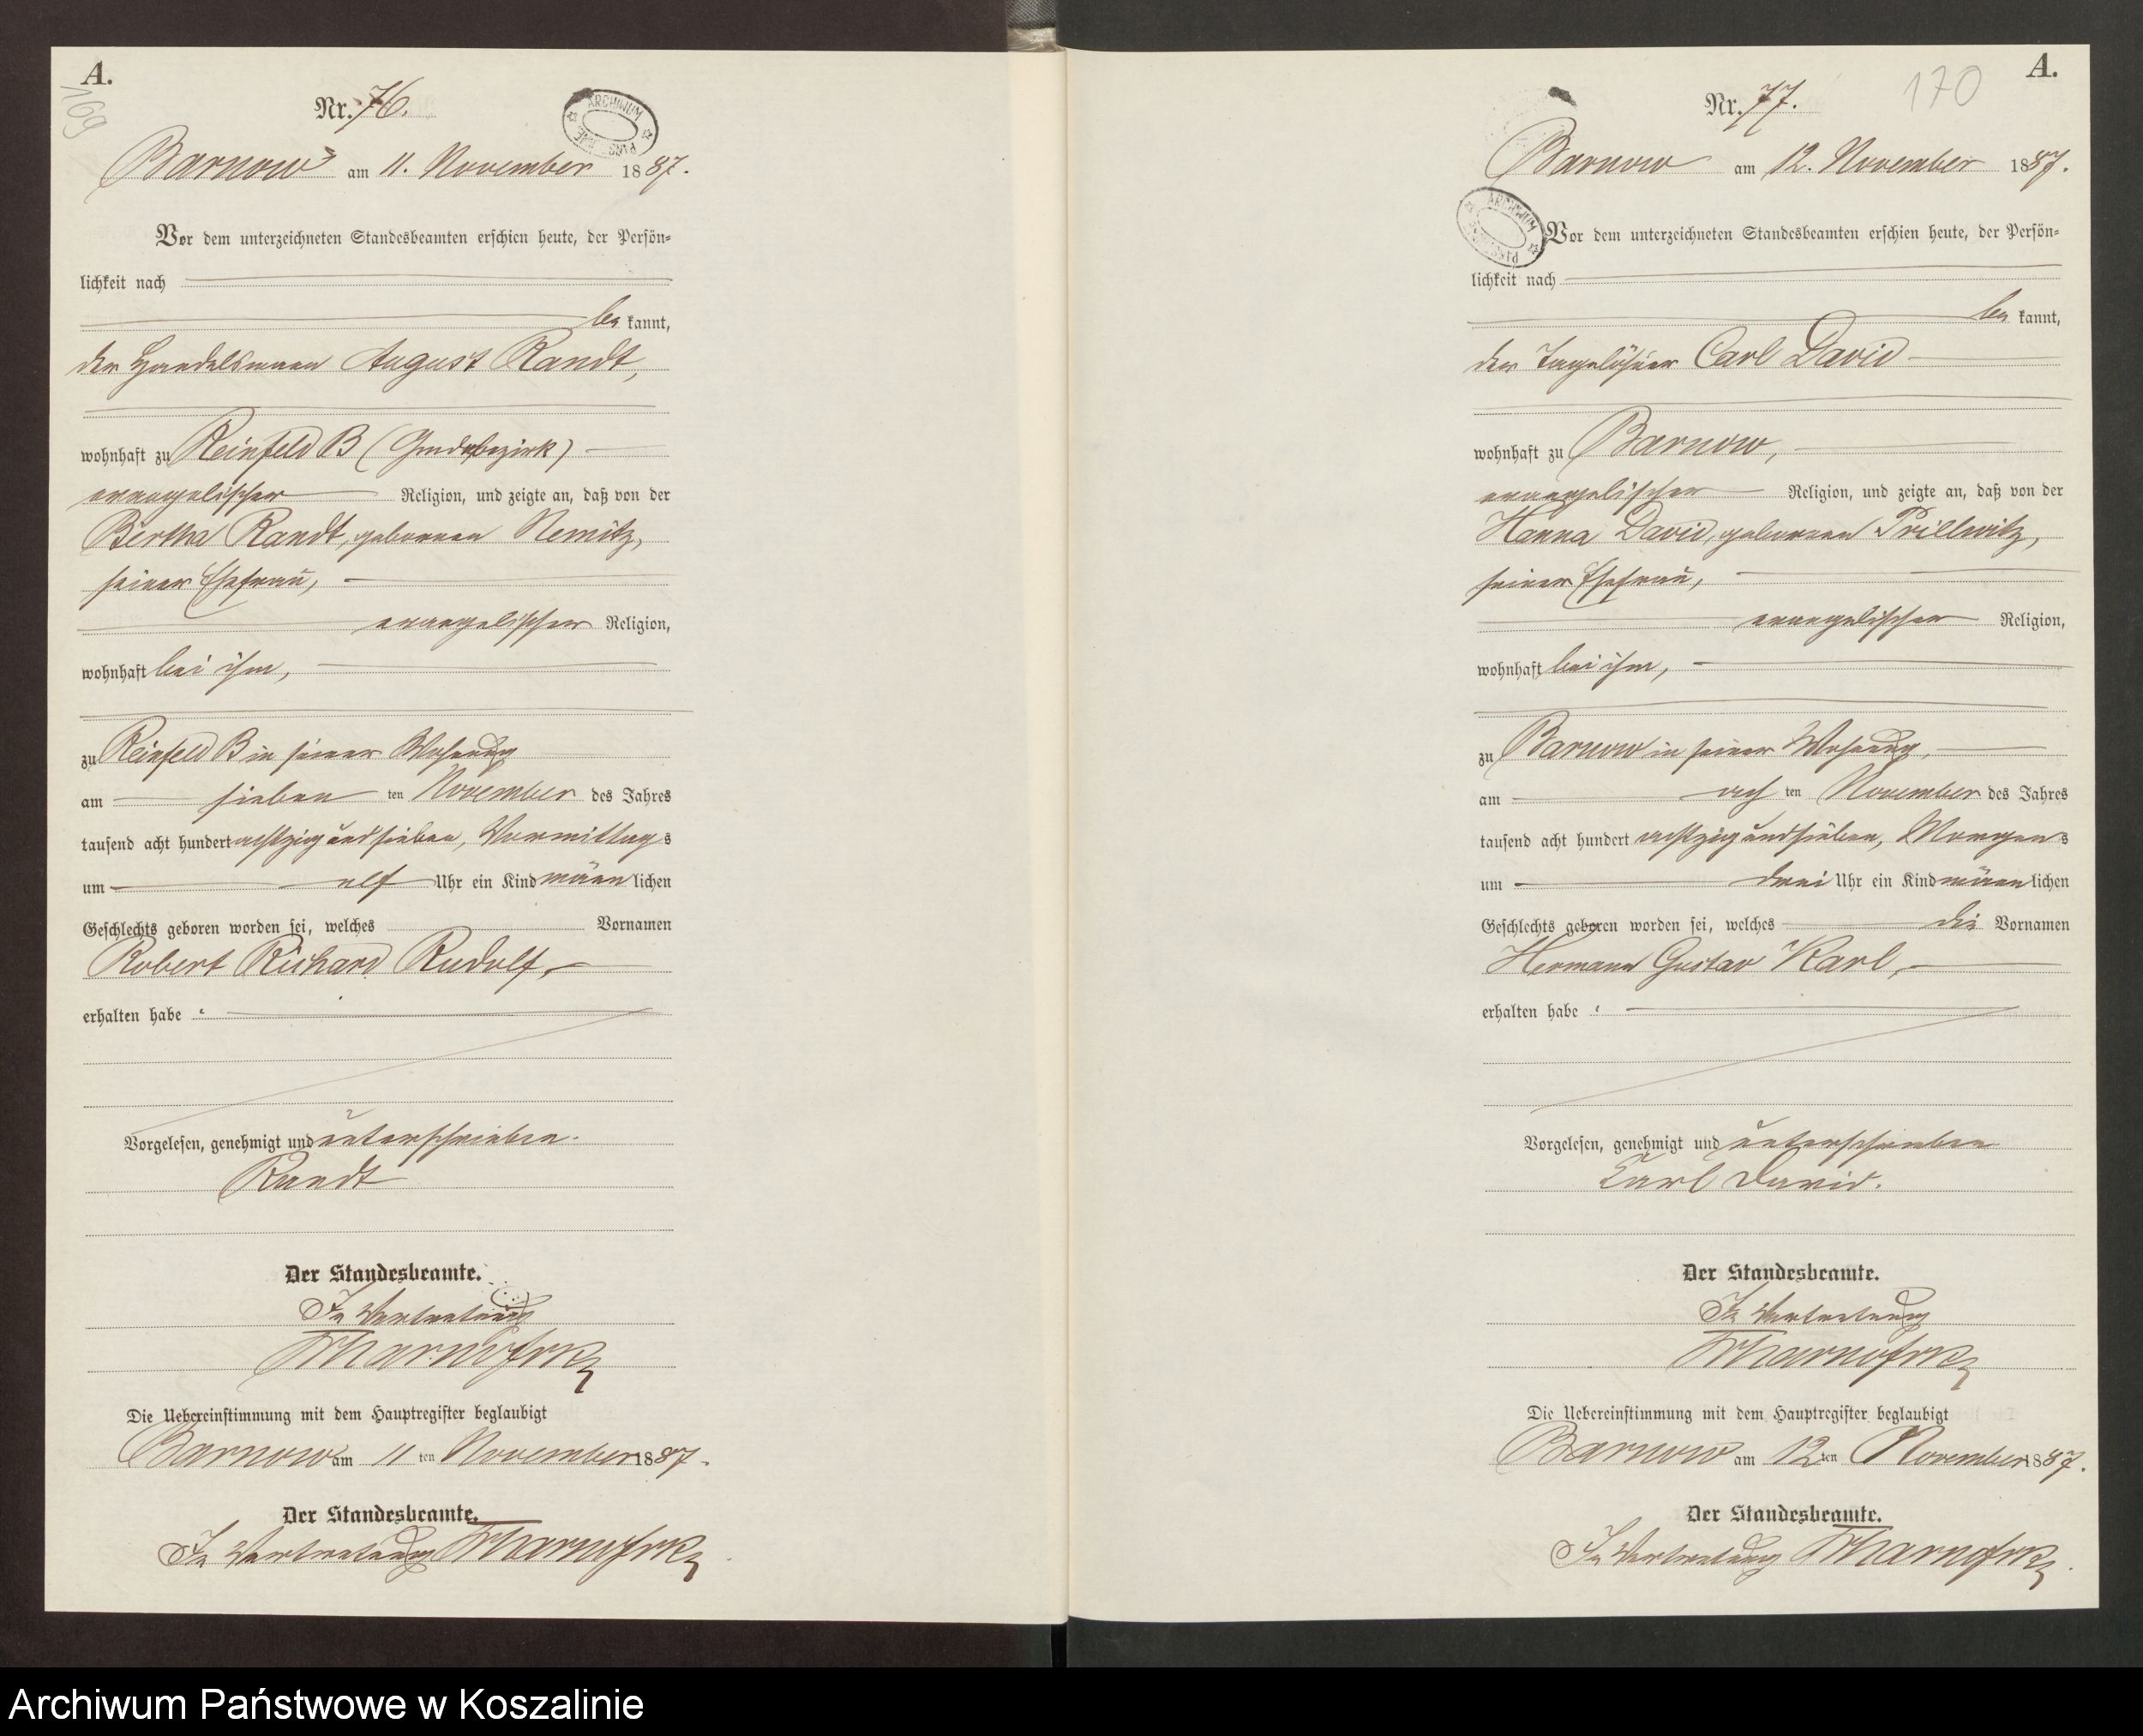 A.
169
Nr. 76.
ARCHIWUM
Barnow am 11. November 1887.
Vor dem unterzeichneten Standesbeamten erschien heute, der Persön-
lichkeit nach
be kannt,
der Handelsmann August Randt,
wohnhaft zu Reinfeld B (Gutsbezirk)
evangelischer Religion, und zeigte an, daß von der
Bertha Randt, geborenen Nemitz,
seiner Ehefrau,
evangelischer Religion,
wohnhaft bei ihm,
zu Reinfeld B in seiner Wohnung
am sieben ten November des Jahres
tausend acht hundert achtzig und sieben, Vormittags
um elf Uhr ein Kind männlichen
Geschlechts geboren worden sei, welches Vornamen
Robert Richard Rudolf,
erhalten habe.
Vorgelesen, genehmigt und unterschrieben.
Randt
Der Standesbeamte.
In Vertretung
Die Uebereinstimmung mit dem Hauptregister beglaubigt
Barnow am 11 ten November 1887.
Der Standesbeamte.
In Vertretung
A.
170
Nr. 77.
Barnow am 12. November 1887.
ARCHIWUM
Vor dem unterzeichneten Standesbeamten erschien heute, der Persön-
lichkeit nach
be kannt,
der Tagelöhner Carl David
wohnhaft zu Barnow,
evangelischer Religion, und zeigte an, daß von der
Hanna David, geborenen Prillwitz,
seiner Ehefrau,
evangelischer Religion,
wohnhaft bei ihm,
zu Barnow in seiner Wohnung,
am ach ten November des Jahres
tausend acht hundert achtzig und sieben, Morgens
um drei Uhr ein Kind männlichen
Geschlechts geboren worden sei, welches die Vornamen
Hermann Gustav Karl,
erhalten habe.
Vorgelesen, genehmigt und unterschrieben
Carl David.
Der Standesbeamte.
In Vertretung
Die Uebereinstimmung mit dem Hauptregister beglaubigt
Barnow am 12 ten November 1887.
Der Standesbeamte.
In Vertretung
Archiwum Państwowe w Koszalinie